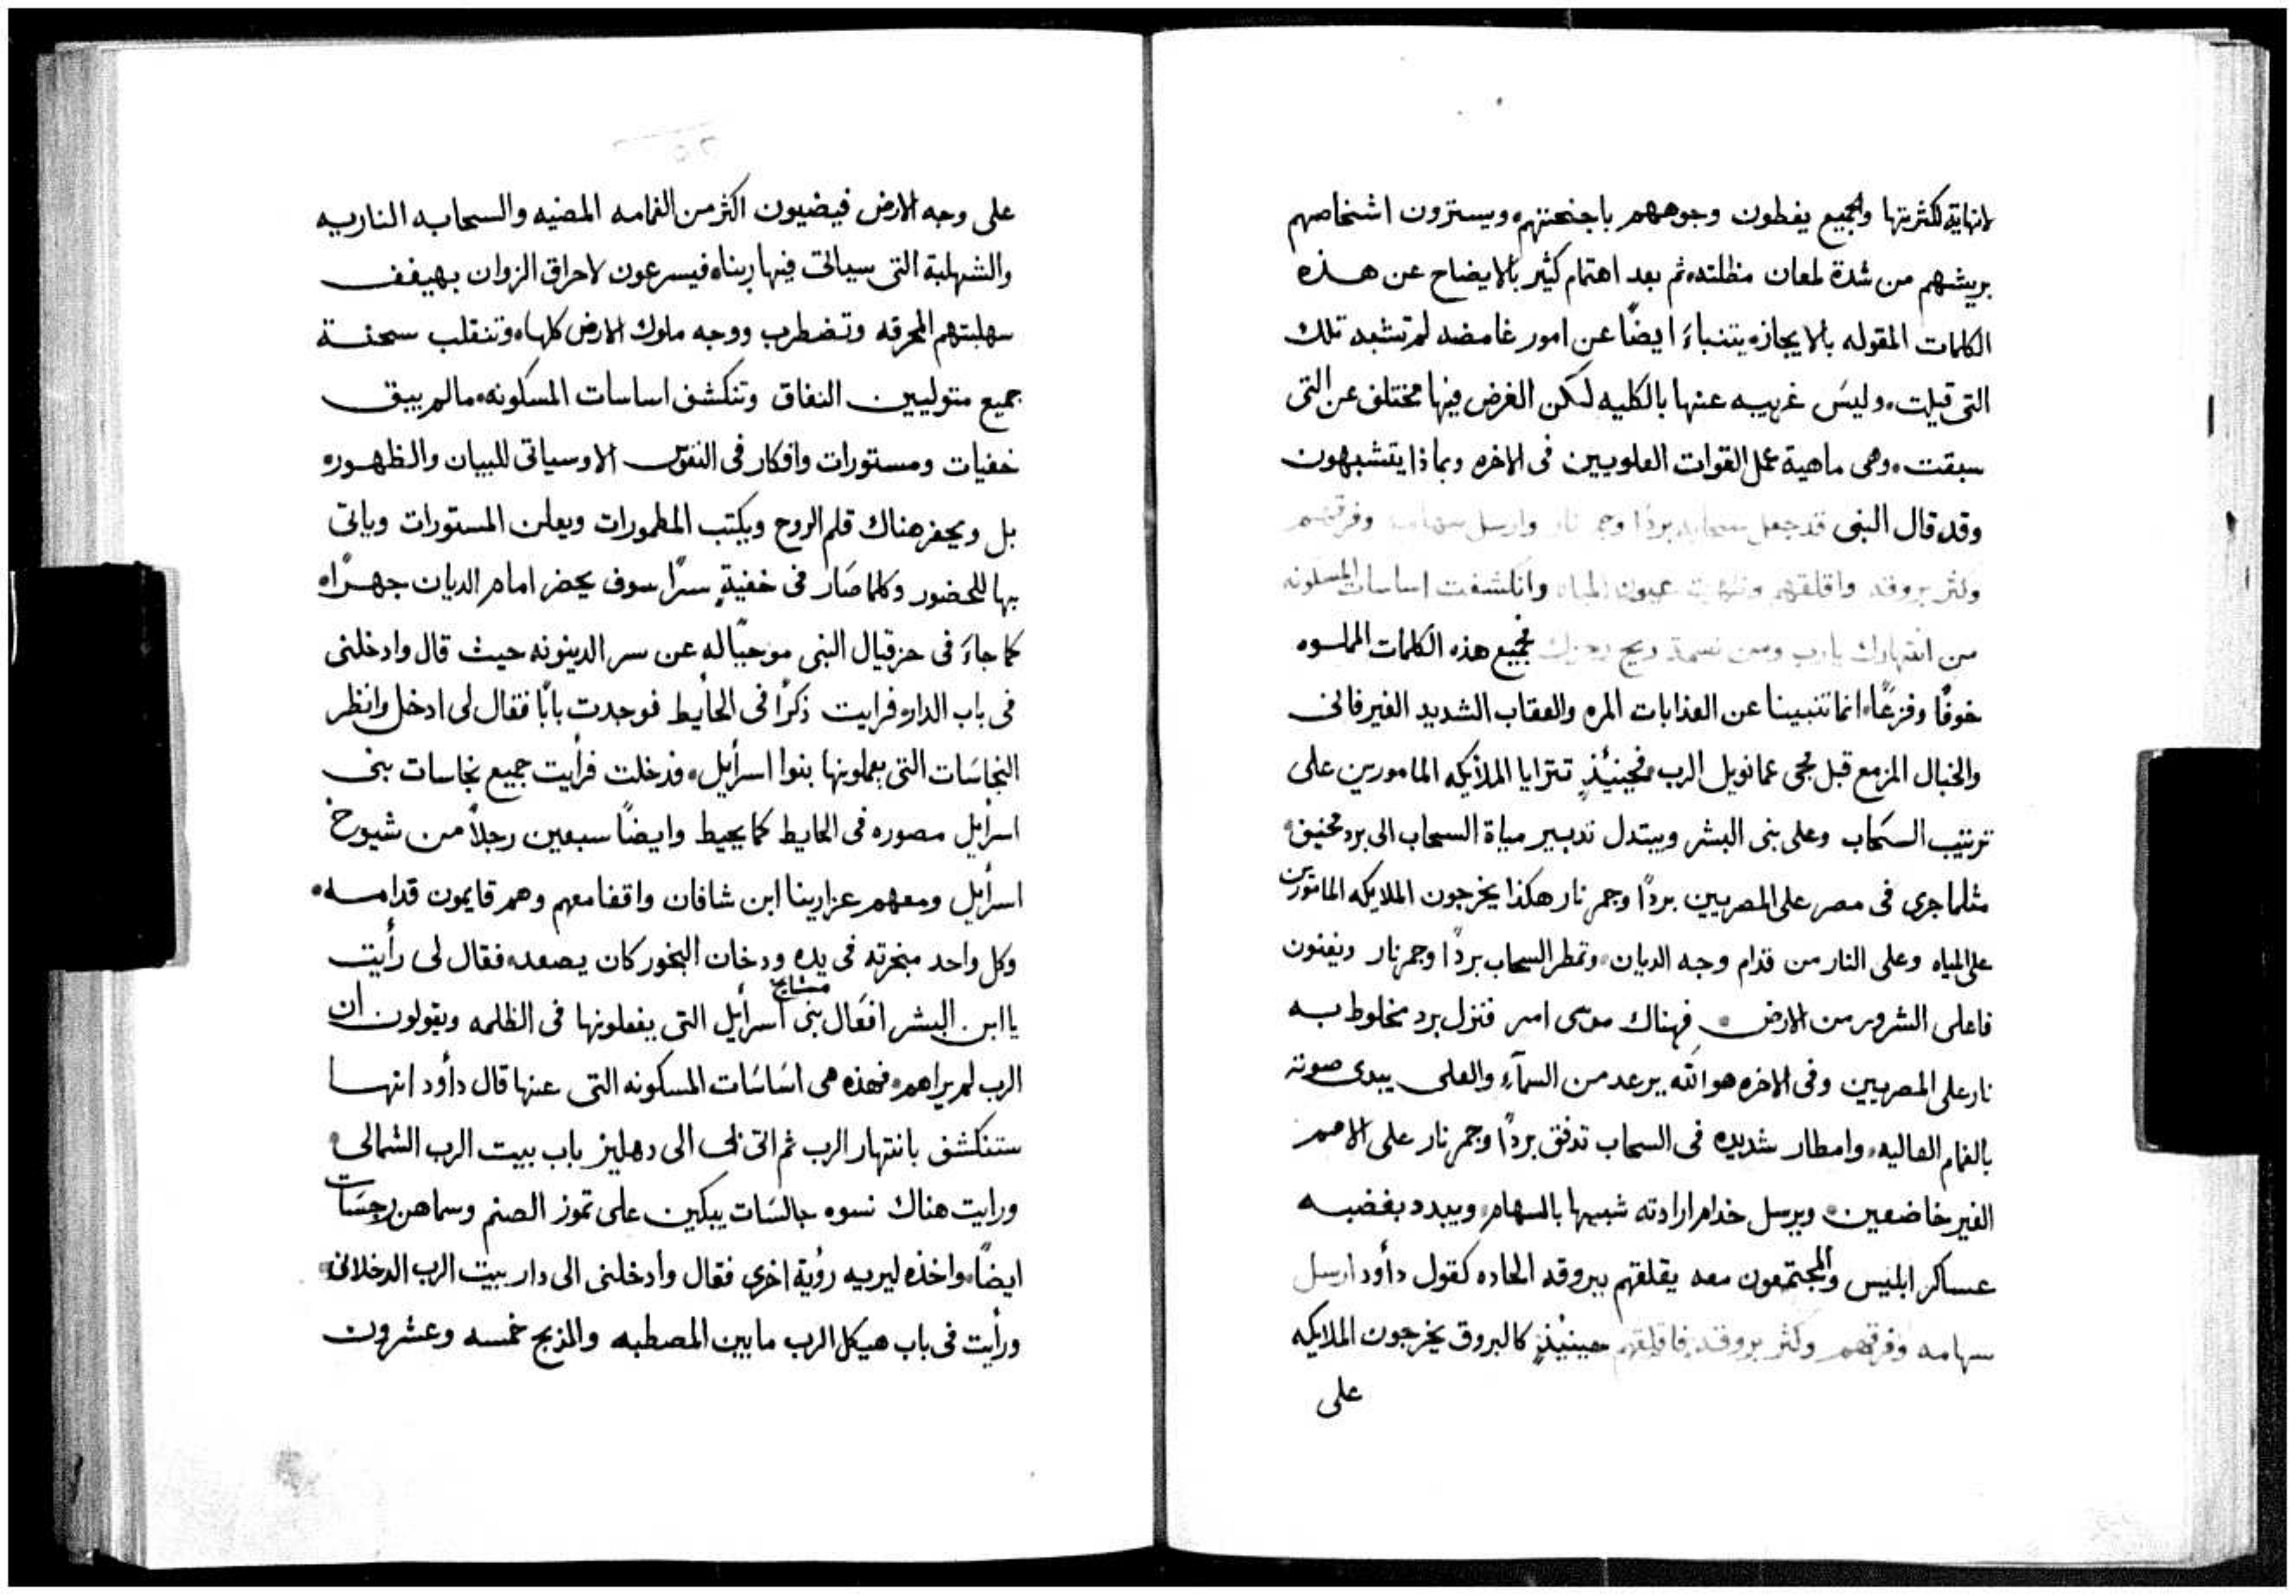 لانهاية لكثرتها والجميع يغطون وجوههم باجنحتهم ويسترون اشخاصهم
بريشهم من شدة لمعان مظلته ثم بعد اهتمام كثير بالايضاح عن هذه
الكلمات المقوله بالايجازه يتنباءَ ايضًا عن امور غامضه لم تشبه تلك
التى قيلت وليسَ غريبه عنها بالكليه لكن الغرض فيها مختلف عن التى
سبقت وهى ماهية عمل القوات العلويين فى الاخره وبماذا يتشبهون
وقد قال النبى قد جعل سحابه بردًا وجمر نار وارسل سهامه وفرقهم
وكثر بروقه واقلقهم وظهرت عيون المياه وانكشفت اساسات المسكونه
من انتهارك يارب ومن نسمة ريح رجزك فجميع هذه الكلمات المملوه
خوفًا وفزعًا انما تنبينا عن العذابات المره والعقاب الشديد الغير فانى
والخبال المزمع قبل مجى عمانويل الرب فحينئذٍ تترايا الملأيكه المامورين على
ترتيب السحَاب وعلى بنى البشر ويبتدل تدبير مياة السحاب الى برد مخيف
مثلما جرى فى مصر على المصريين بردًا وجمر نار هكذا يخرجون الملايكه المامورين
على المياه وعلى النار من قدام وجه الديان وتمطر السحاب بردًا وجمر نار ويفنون
فاعلى الشرور من الارض فهناك موسى امر فنزل برد مخلوط به
نار على المصريين وفى الاخره هو الله يرعد من السمآءِ والعلى يبدى صوته
بالغمام العاليه وامطار شديده فى السحاب تدفق بردًا وجمر نار على الامم
الغير خاضعين ويرسل خدام ارادته شبيها بالسهام ويبدد بغضبه
عساكر ابليس والمجتمعون معه يقلقهم ببروقه الحاده كقول دأود ارسل
سهامه وفرقهم وكثر بروقه فاقلقهم حينيئذٍ كالبروق يخرجون الملايكه
على
على وجه الارض فيضيون اكثر من الغمامه المضيه والسحابه الناريه
والشهلبة التى سياتى فيها ربناه فيسرعون لاحراق الزوان بهيفف
سهلبتهم المحرقه وتضطرب ووجه ملوك الارض كلهاه وتنقلب سحنة
جميع متوليين النفاق وتنكشف اساسات المسكونه مالم يبق
خفيات ومستورات وافكار فى النفوس الا وسياتى للبيان والظهوره
بل ويحفر هناك قلم الروح ويكتب المطمورات ويعلن المستورات وياتى
بها للحضور وكلما صَار فى خفيةٍ سرًا سوف يحضر امام الديان جهرًاه
كما جاءَ فى حزقيال النبى موحيًا له عن سر الدينونه حيث قال وادخلنى
فى باب الداره فرايت ذكرًا فى الحأيط فوجدت بابًا فقال لى ادخل وانظر
النجاسَات التى يعملونها بنوا اسرأيل فدخلت فرأيت جميع نجاسات بنى
اسرأيل مصوره فى الحايط كما يحيط وايضًا سبعين رجلاً من شيوخ
اسرأيل ومعهم عزارينا ابن شافان واقفا معهم وهم قايمون قدامه
وكل واحد مبخرته فى يده ودخان البخور كان يصعد فقال لى رأيت
يا ابن البشر افعَال بنى مشايخ اسرأيل التى يفعلونها فى الظلمه ويقولون ان
الرب لم يراهم فهذه هى اسَاسَات المسكونه التى عنها قال دأود انها
ستنكشف بانتهار الرب ثم اتى بى الى دهليز باب بيت الرب الشمالى
ورايت هناك نسوه جالسَات يبكين على تموز الصنم وسماهن رجسَات
ايضًا واخذه ليريه رؤية اخرى فقال وأدخلنى الى دار بيت الرب الدخلانى
ورأيت فى باب هيكل الرب مابين المصطبه والمذبح خمسه وعشرون